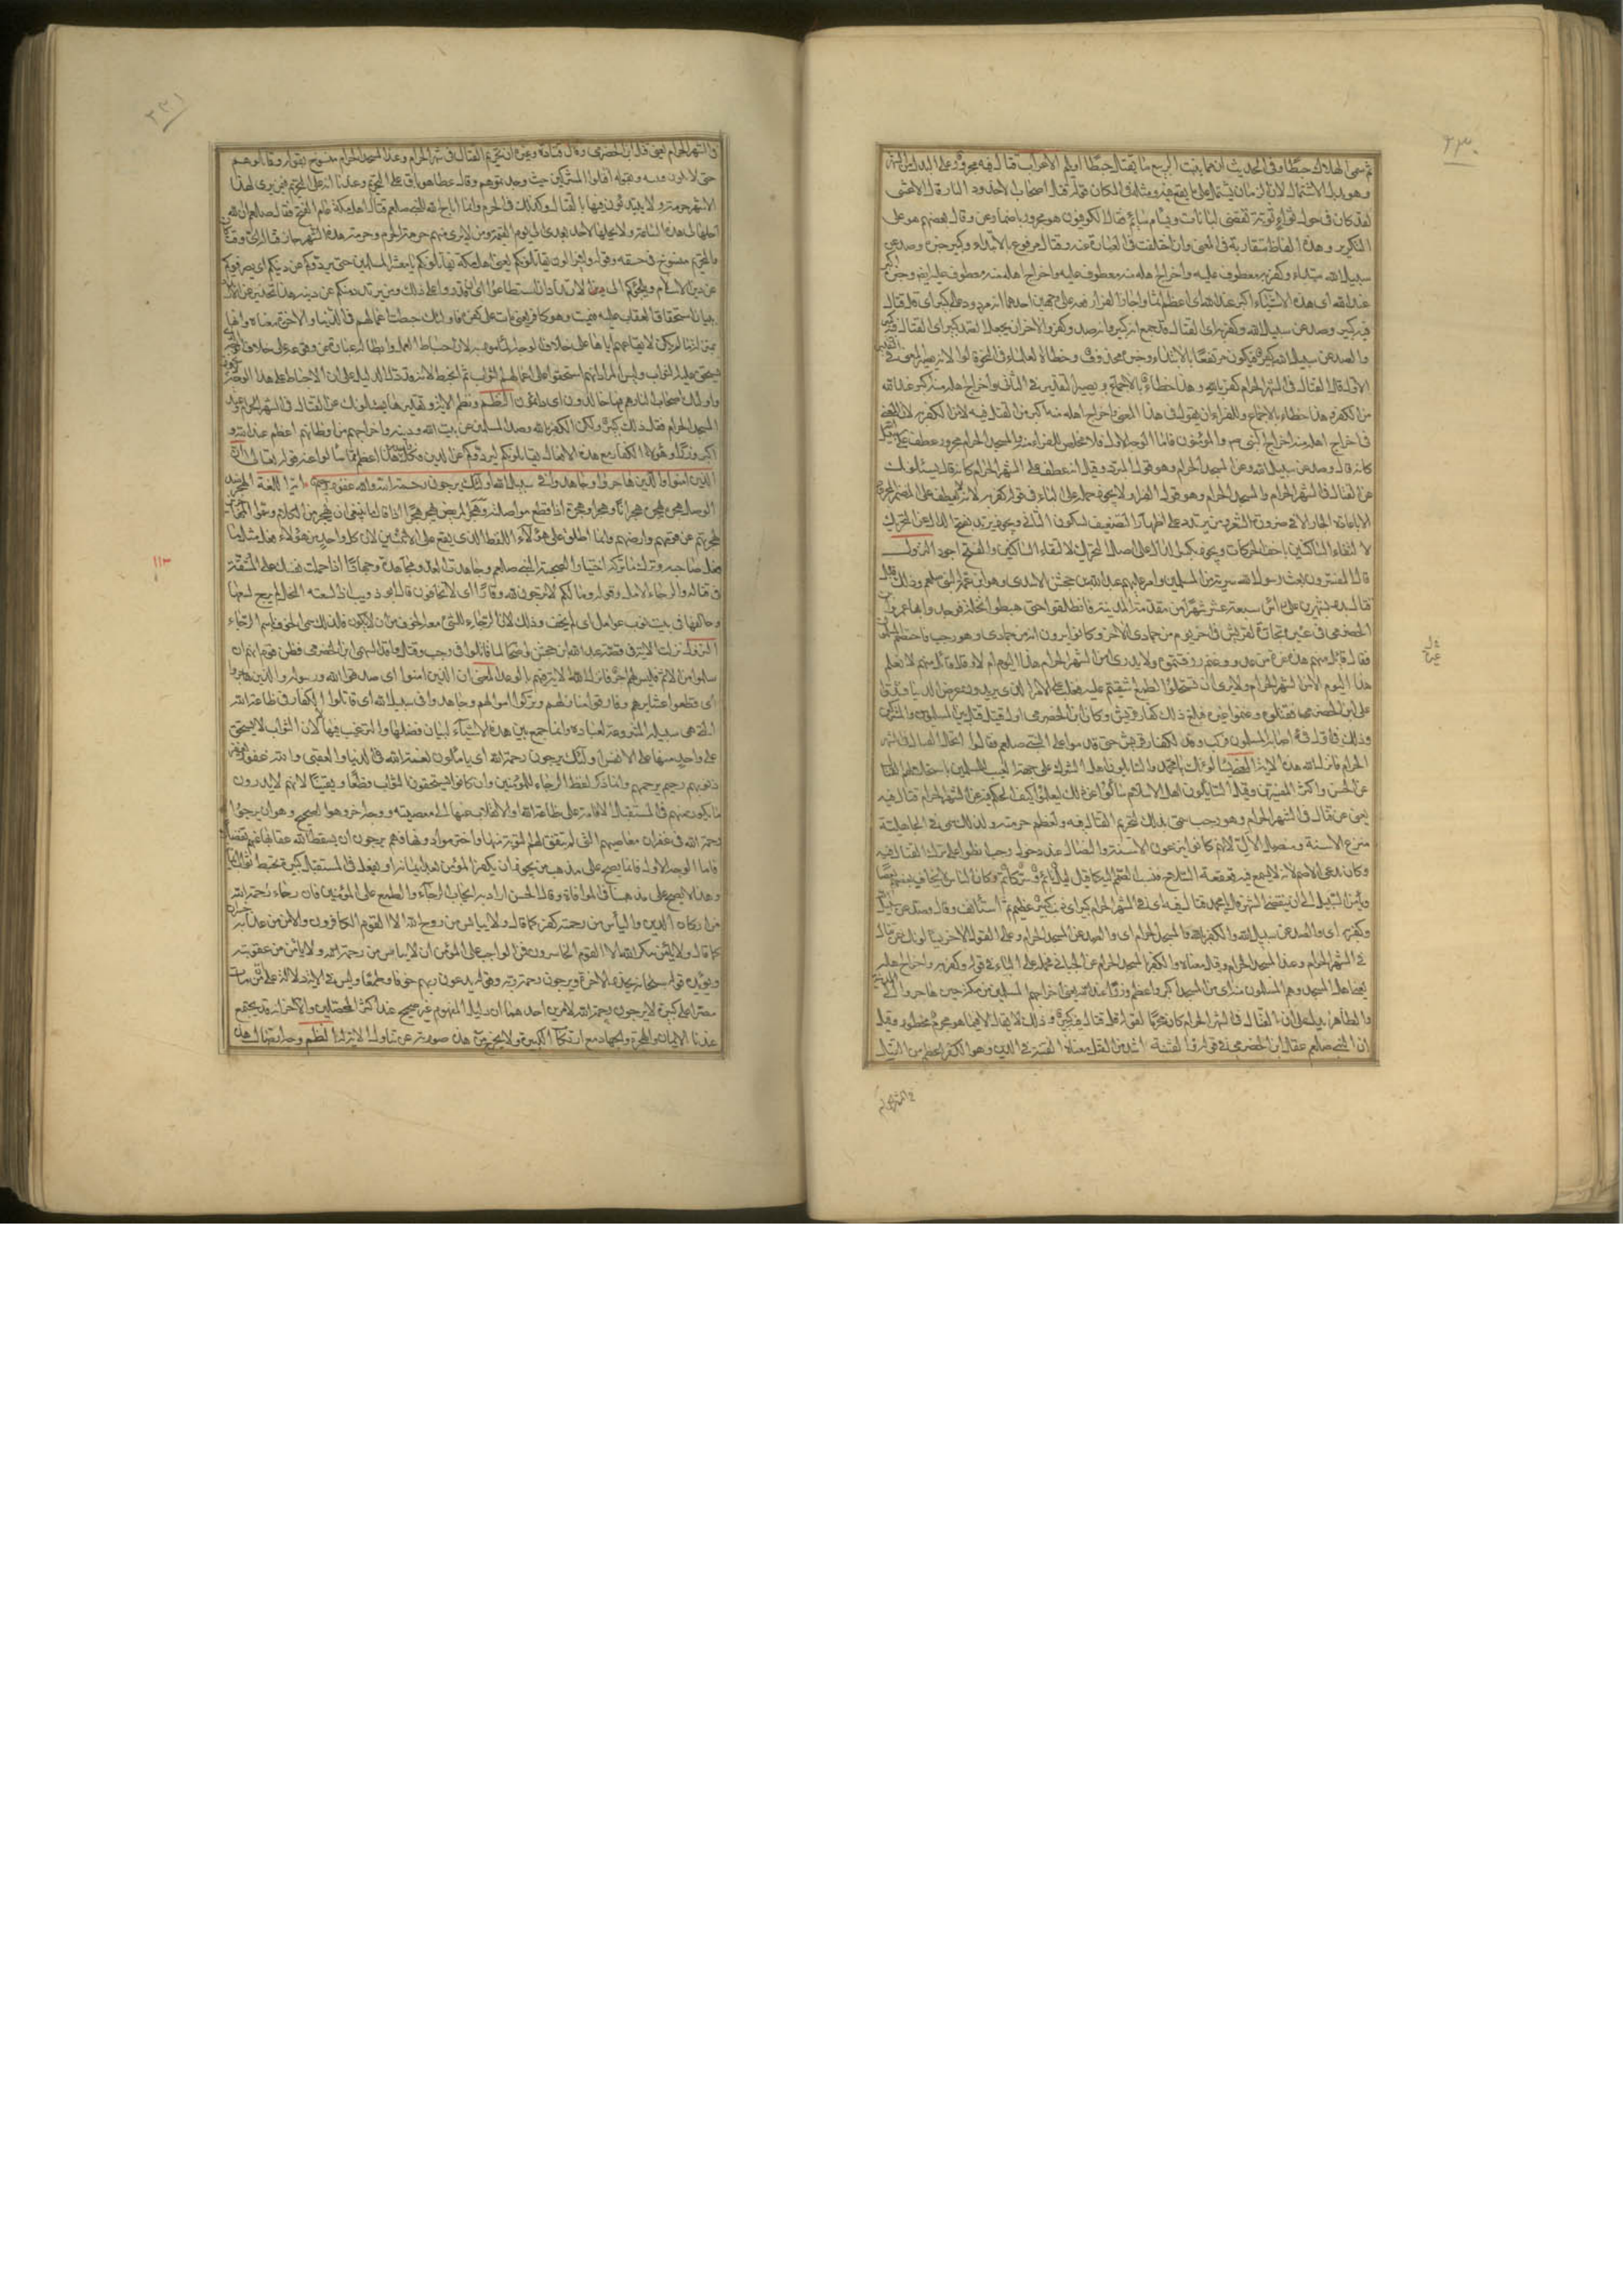 ٢٣٠
ثم سمى الهلاك حبطا وفى الحديث ان مما ينبت الربيع ما يقتل حبطا او يلم الاعراب قتال فيه مجرور على البدل من الشهر
وهو بدل الاشتمال لان الزمان يشتمل على ما يقع فيه ومثله فى المكان قوله قتل اصحاب الاخدود النار قال الاعشى
لقد كان فى حول ثواء ثويته تقضى لبانات ويسام سائم وقال الكوفيون هو مجرور باضمار عن وقال بعضهم هو على
التكرير وهذه الفاظ متقاربة فى المعنى وان اختلفت فى العبارة عنه وقتال مرفوع بالابتداء وكبير خبره وصد عن
سبيل الله مبتداء وكفر به معطوف عليه واخراج اهله منه معطوف عليه وخبره
عند الله اى هذه الاشياء اكبر عند الله اى اعظم اثما واجاز الفراء رفعه على وجهين احدهما انه مردود على كبير اى قل قتال
فيه كبير وصد عن سبيل الله وكفر به
والصد عن سبيل الله كبير فيكون مرتفعا بالابتداء وخبره محذوف وخطاه العلماء فى النحو قالوا لانه يصير المعنى فى
الاول قل القتال فى الشهر الحرام كفر بالله وهذا خطاء بالاجماع ويصير التقدير فى الثانى واخراج اهله منه اكبر عند الله
من الكفر وهذا خطاء بالاجماع وللفراء ان يقول فى هذا المعنى واخراج اهله منه اكبر من القتل فيه لا من الكفر به لان المعنى
فى اخراج اهله منه اخراج النبى والمؤمنون فاما الوجه الاول فلا مخلص للفراء منه والمسجد الحرام مجرور عطف على سبيل الله
كانه قال وصد عن سبيل الله وعن المسجد الحرام وهو قول المبرد وقيل انه عطف على الشهر الحرام كانه قال يسئلونك
عن القتال فى الشهر الحرام والمسجد الحرام وهو قول الفراء ولا يجوز حمله على الباء فى قوله كفر به لانه لا يعطف على المضمر المجرور
الا باعادة الجار الا فى ضرورة الشعر ومن يرتدد على اظهار التضعيف لسكون الثانى ويجوز يرتد بفتح الدال على التحريك
لالتقاء الساكنين باخف الحركات ويجوز بكسر الدال على اصل التحريك لالتقاء الساكنين والفتح اجود النزول
قال المفسرون بعث رسول الله سرية من المسلمين وامر عليهم عبد الله بن جحش الاسدى وهو ابن عمة النبى صلعم وذلك قبل
قتال بدر بشهرين على راس سبعة عشر شهرا من مقدمه المدينة فانطلقوا حتى هبطوا نخلة فوجدوا بها عمرو بن
الحضرمى فى عير تجارة لقريش فى اخر يوم من جمادى الاخرة وكانوا يرون انه من جمادى وهو رجب فاختصم المسلمون
فقال قائل منهم هذه غرة من عدو وغنم رزقتموه ولا يدرى امن الشهر الحرام هذا اليوم ام لا وقال قائل منهم لا نعلم
هذا اليوم الا من الشهر الحرام ولا نرى ان تستحلوا لطمع اشفيتم عليه فغلب على الامر الذين يريدون عرض الدنيا فشدوا
على ابن الحضرمى فقتلوه وغنموا عيره فبلغ ذلك كفار قريش وكان ابن الحضرمى اول قتيل قتل بين المسلمين والمشركين
وذلك اول فئ اصابه المسلمون فركب وفد لكفار قريش حتى قدموا على النبى صلعم فقالوا ايحل القتال فى الشهر
الحرام فانزل الله هذه الاية المعنى يسئلونك يا محمد والسائلون اهل الشرك على جهة العيب للمسلمين باستحلالهم القتال
عن الحسن واكثر المفسرين وقيل السائلون اهل الاسلام سالوا عن ذلك ليعلموا كيف الحكم فيه عن الشهر الحرام قتال فيه
يعنى عن قتال فى الشهر الحرام وهو رجب سمى بذلك لتحريم القتال فيه ولعظم حرمته ولذلك سمى فى الجاهلية
منزع الاسنة ومنصل الال لانهم كانوا ينزعون الاسنة والنصال عند دخول رجب انطواء على ترك القتال فيه
وكان يدعى الاصم لانه لا يسمع فيه قعقعة السلاح فنسب الصمم اليه كما قيل ليل نائم وسر كاتم وكان الناس لا يخاف بعضهم بعضا
وتامن السبل الى ان ينقضى الشهر قل يا محمد قتال فيه اى فى الشهر الحرام كبير اى ذنب كبير عظيم ثم استانف وقال وصد عن سبيل الله
وكفر به اى والصد عن سبيل الله والكفر بالله والمسجد الحرام اى والصد عن المسجد الحرام وعلى القول الاخر يسئلونك عن قتال
فى الشهر الحرام وعند المسجد الحرام وقيل معناه والكفر بالمسجد الحرام عن الجبائى فحمله على الباء فى قوله وكفر به واخراج اهله
يعنى اهل المسجد وهم المسلمون منه اى من المسجد اكبر واعظم وزرا عند الله يعنى اخراجهم المسلمين من مكة حين هاجروا الى المدينة
والظاهر يدل على ان القتال فى الشهر الحرام كان محرما لقوله قل قتال فيه كبير وذلك لا يقال الا فيما هو محرم محظور وقيل
ان النبى صلعم عقل ابن الحضرمى فى قوله والفتنة اشد من القتل معناه الفتنة فى الدين وهو الكفر اعظم من القتل
فى الشهر الحرام
٢٣١
فى الشهر الحرام يعنى قتل ابن الحضرمى وقال قتادة وغيره ان تحريم القتال فى الشهر الحرام وعند المسجد الحرام منسوخ بقوله وقاتلوهم
حتى لا تكون فتنة وبقوله اقتلوا المشركين حيث وجدتموهم وقال عطا هو باق على التحريم وعندنا انه على التحريم فيمن يرى لهذه
الاشهر حرمة ولا يبتدئون فيها بالقتال وكذلك فى الحرم وانما اباح الله للنبى صلعم قتال اهل مكة عام الفتح فقال صلعم ان الله
احلها لى هذه الساعة ولا يحلها لاحد بعدى الى يوم القيمة ومن لا يرى منهم حرمة الحرم وحرمة هذه الشهر جاز قتاله اى وقت
والتحريم منسوخ فى حقه وقوله ولا يزالون يقاتلونكم يعنى اهل مكة يقاتلونكم يا معشر المسلمين حتى يردوكم عن دينكم اى يصرفوكم
عن دين الاسلام ويلجئوكم الى الارتداد ان استطاعوا اى ان قدروا على ذلك ومن يرتدد منكم عن دينه هذا تحذير عن الارتداد
ببيان استحقاق العقاب عليه فيمت وهو كافر يعنى مات على كفره فاولئك حبطت اعمالهم فى الدنيا والاخرة معناه انها
صارت بمنزلة ما لم يكن لايقاعهم اياها على خلاف الوجه المامور به لان احباط العمل وابطاله عبارة عن وقوعه على خلاف الوجه الذى
يستحق عليه الثواب وليس المراد انهم استحقوا على اعمالهم الثواب ثم انحبط لانه قد دل الدليل على ان الاحباط على هذا الوجه لا يجوز
واولئك اصحاب النار هم فيها خالدون اى دائمون النظم ونظم الاية وتقديرها يسئلونك عن القتال فى الشهر الحرام وعند
المسجد الحرام فقل ذلك كبير ولكن الكفر بالله وصد المسلمين عن بيت الله ودينه واخراجهم من اوطانهم اعظم عند الله و
اكبر وزرا وهؤلاء الكفار مع هذه الافعال يقاتلونكم ليردوكم عن الدين فكل واحد من هذا اعظم مما سالوا عنه قوله تعالى ان
الذين امنوا والذين هاجروا وجاهدوا فى سبيل الله اولئك يرجون رحمة الله والله غفور رحيم اية اللغة الهجر ضد
الوصل يقال هجره يهجره هجرانا وهجرا وهجرة اذا قطع مواصلته وهجر المريض يهجر هجرا اذا قال ما ينبغى ان يهجر من الكلام وسموا المهاجرين
لهجرتهم عن قومهم وارضهم وانما اطلق على هؤلاء اللفظ الذى يقع على الاثنين لان كل واحد من هؤلاء فعل مثل ما
فعل صاحبه وترك ما تركه اختيارا لصحبة النبى صلعم وجاهدت العدو مجاهدة وجهادا اذا حملت نفسك على المشقة
فى قتاله والرجاء الامل وقوله ما لكم لا ترجون لله وقارا اى لا تخافون قال ابو ذويب اذا لسعته النحل لم يرج لسعها
وحالفها فى بيت نوب عوامل اى لم يخف وذلك لان الرجاء للشئ معه الخوف من ان لا يكون فلذلك سمى الخوف باسم الرجاء
النزول نزلت الاية فى قصة عبد الله بن جحش واصحابه لما قاتلوا فى رجب وقتل واقد السهمى ابن الحضرمى فظن قوم انهم ان
سلموا من الاثم فليس لهم اجر فانزل الله الاية فيهم بالوعد المعنى ان الذين امنوا اى صدقوا الله ورسوله والذين هاجروا
اى قطعوا عشايرهم وفارقوا منازلهم وتركوا اموالهم وجاهدوا فى سبيل الله اى قاتلوا الكفار فى طاعة الله
التى هى سبيله المشروعة لعباده وانما جمع بين هذه الاشياء لبيان فضلها والترغيب فيها لا لان الثواب لا يستحق
على واحد منها على الانفراد اولئك يرجون رحمة الله اى ياملون نعمة الله فى الدنيا والعقبى والله غفور يغفر
ذنوبهم رحيم يرحمهم وانما ذكر لفظ الرجاء للمؤمنين وان كانوا يستحقون الثواب قطعا ويقينا لانهم لا يدرون
ما يكون منهم فى المستقبل الاقامة على طاعة الله او الانقلاب عنها الى معصيته ووجه اخر وهو الصحيح وهو ان يرجوا
رحمة الله فى غفران معاصيهم التى لم يتفق لهم التوبة منها واخترموا دونها فهم يرجون ان يسقط الله عقابها عنهم تفضلا
فاما الوجه الاول فانما يصح على مذهب من يجوز ان يكفر المؤمن بعد ايمانه او يفعل فى المستقبل كبيرة تحبط ثواب ايمانه
وهذا لا يصح على مذهبنا فى الموافاة وقال الحسن اراد به ايجاب الرجاء والطمع على المؤمنين فان رجاء رحمة الله
من اركان الدين والياس من رحمته كفر كما قال ولا ييأس من روح الله الا القوم الكافرون والامن من عذابه خسران
كما قال ولا يامن مكر الله الا القوم الخاسرون فمن الواجب على المؤمن ان لا ييأس من رحمته ولا يامن من عقوبته
ويؤيده قوله سبحانه يحذر الاخرة ويرجون رحمة ربه وقوله يدعون ربهم خوفا وطمعا وليس فى الاية دلالة على ان من مات
مصرا على كبيرة لا يرجون رحمة الله لامرين احدهما ان دليل المفهوم غير صحيح عند اكثر المحصلين والاخر انه قد يجتمع
عندنا الايمان والهجرة والجهاد مع ارتكاب الكبيرة ولا يخرج من هذه صورته عن تناول الاية له النظم وجه اتصال هذه
١١٣